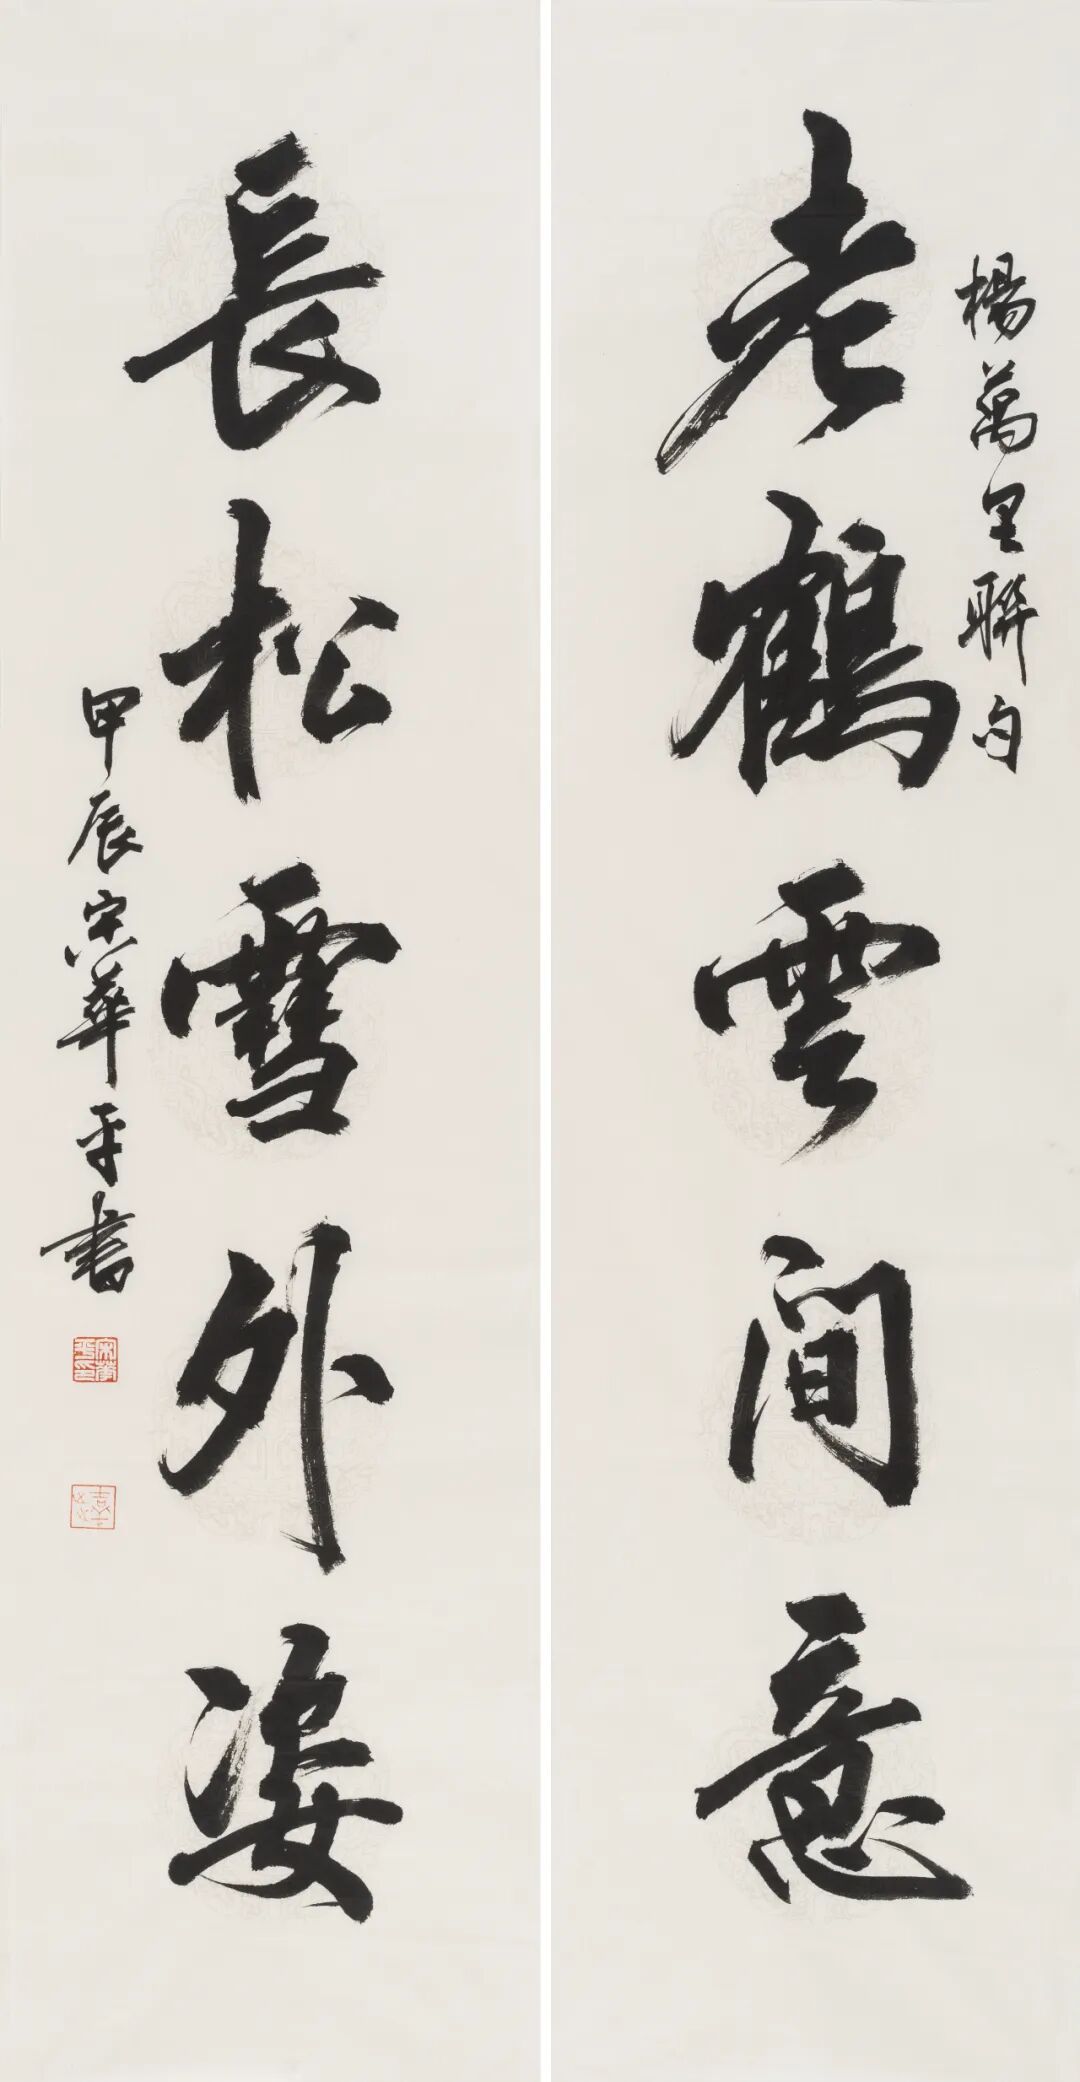 楊萬里聯句
老鶴雲間意
長松雪外姿
甲辰宋華平書
宋華平印